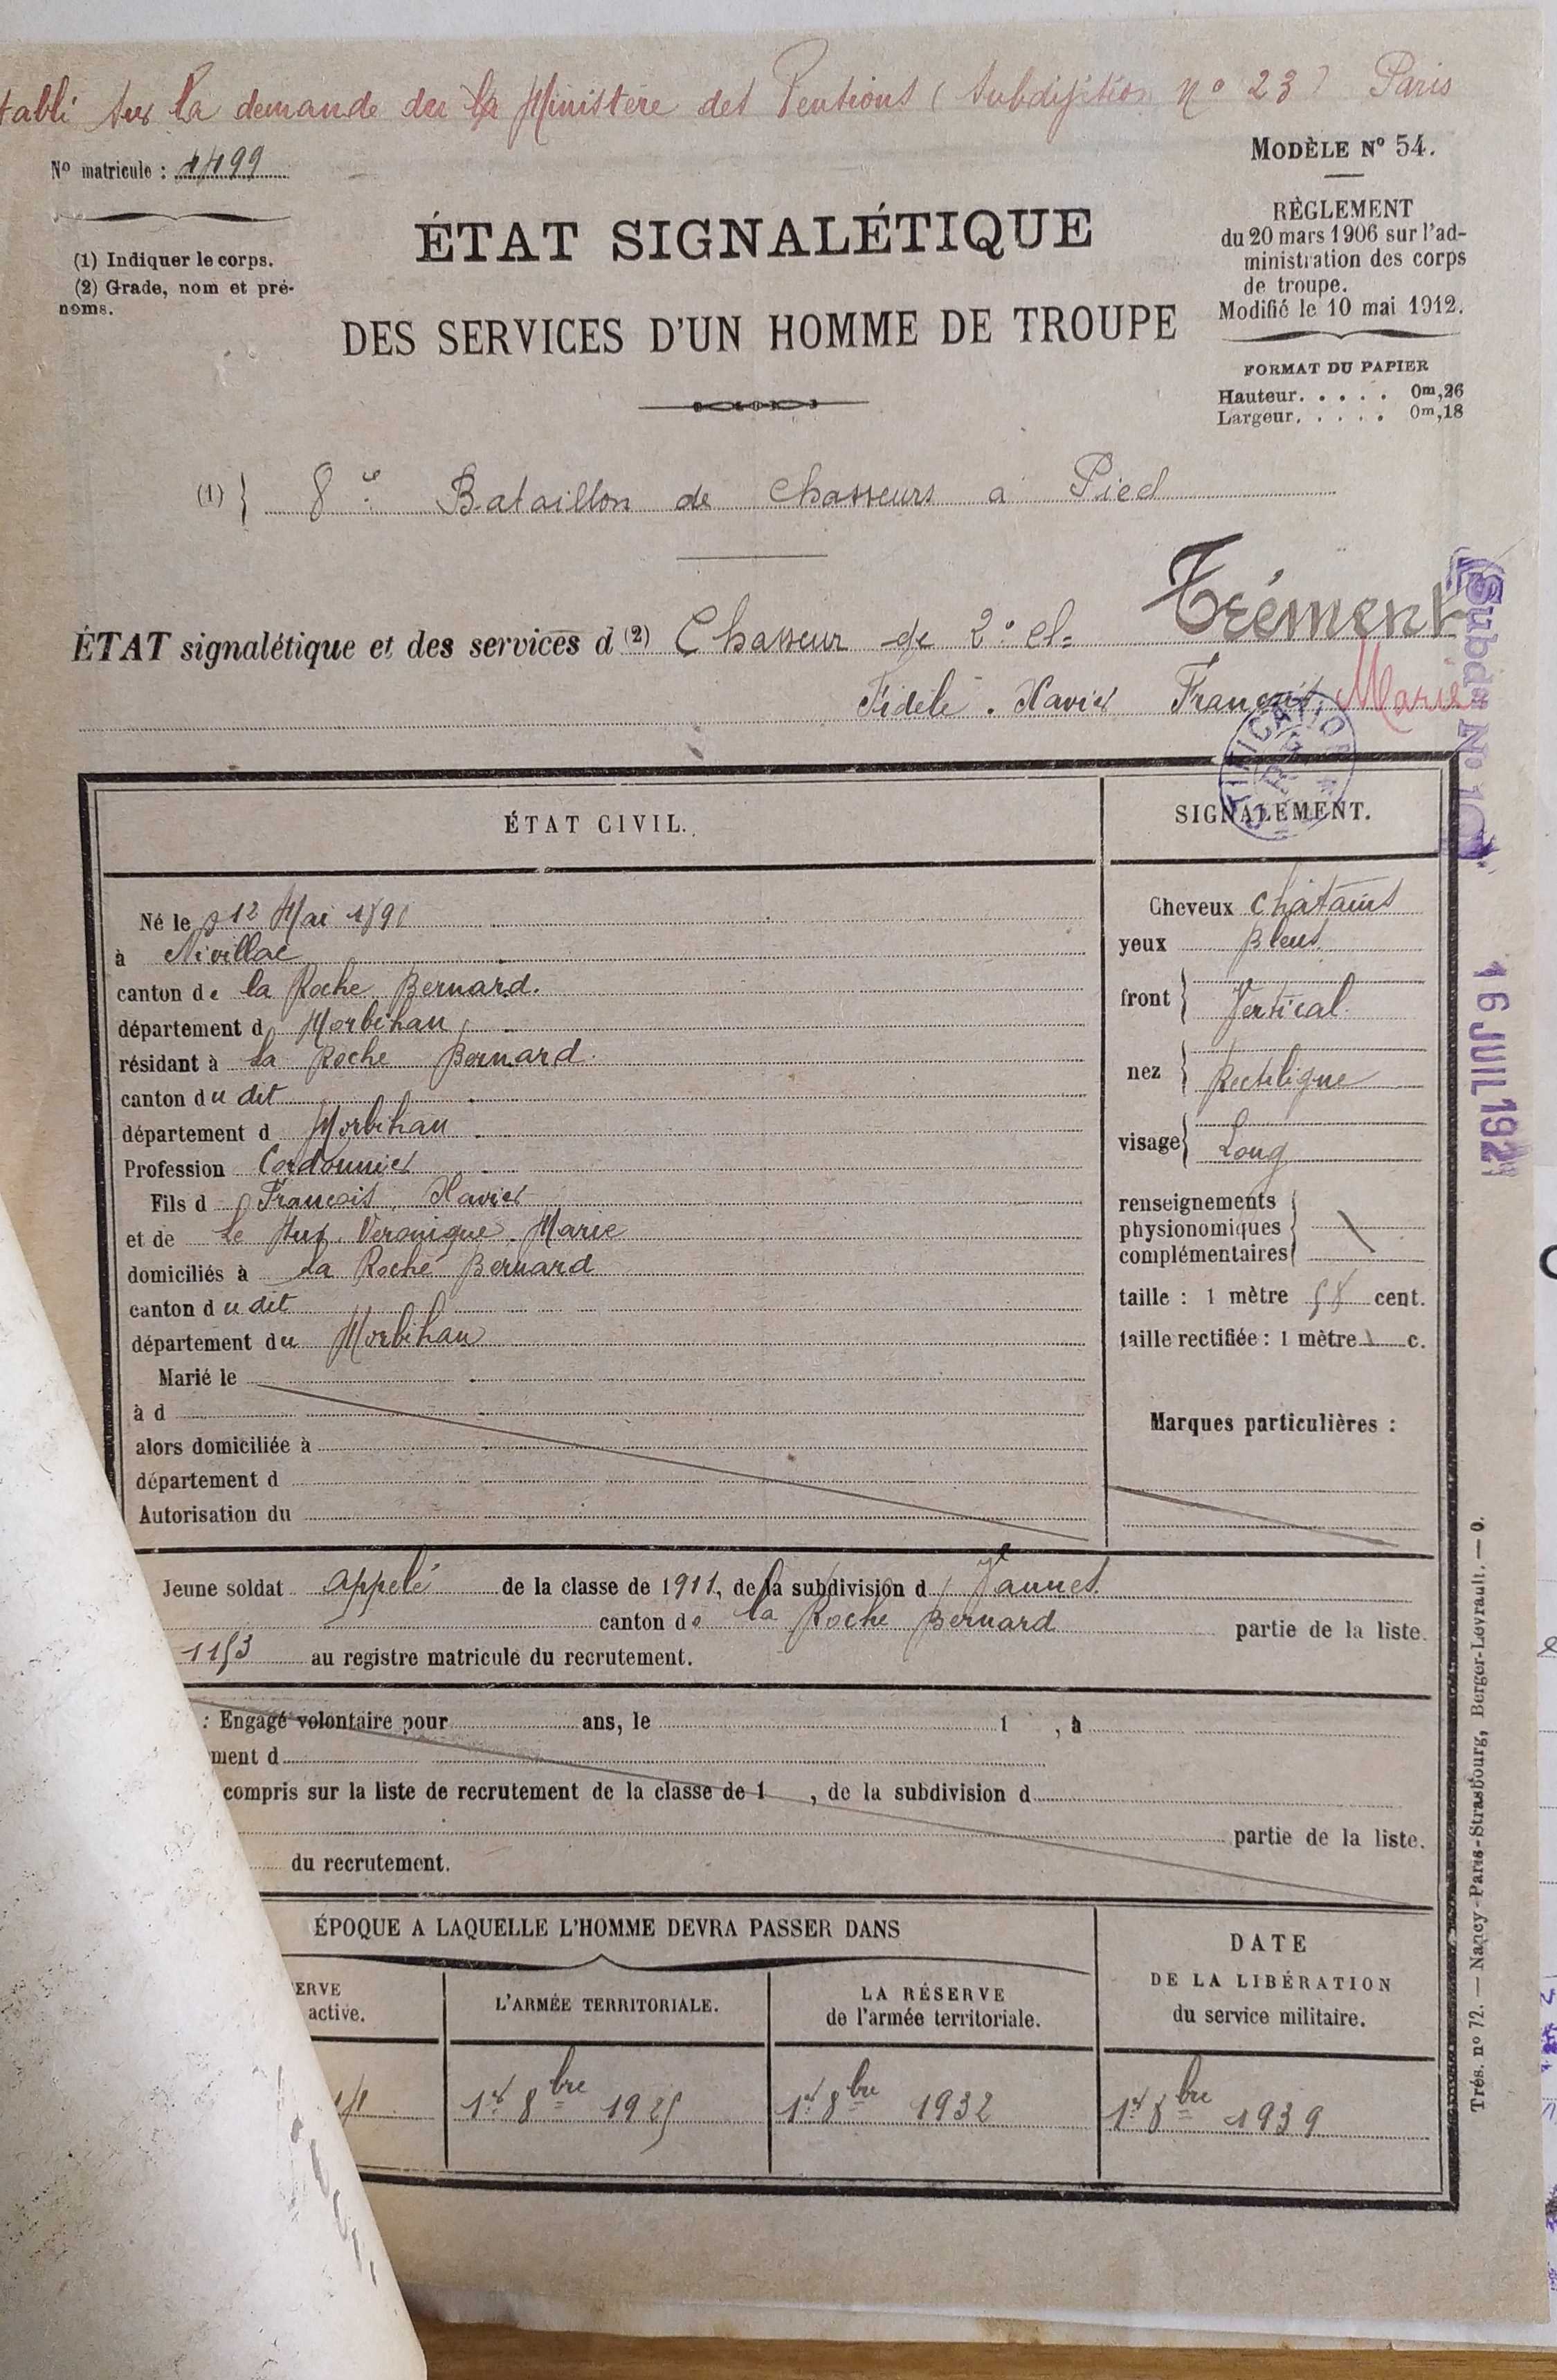 tabli sur la demande du la Ministère des Pensions (Subdivision nº 23) Paris
Nº matricule : 4499
MODÈLE Nº 54.
RÈGLEMENT
du 20 mars 1906 sur l'ad-
ministration des corps
de troupe.
Modifié le 10 mai 1912.
FORMAT DU PAPIER
Hauteur. . . . . 0m,26
Largeur. . . . . 0m,18
(1) Indiquer le corps.
(2) Grade, nom et pré-
noms.
ÉTAT SIGNALÉTIQUE
DES SERVICES D'UN HOMME DE TROUPE
(1) } 8e Bataillon de Chasseurs a Pied
ÉTAT signalétique et des services d (2) Chasseur de 2e cl. Trément
Fidèle. Xavier François Marie
Subdon Nº 10
16 JUIL 192
ÉTAT CIVIL.
Né le 12 Mai 1891
à Nivillac
canton de la Roche Bernard.
département d Morbihan
résidant à La Roche Bernard.
canton du dit
département d Morbihan
Profession Cordonnier
Fils d François Xavier
et de Le Veronique Marie
domiciliés à La Roche Bernard
canton du dit
département du Morbihan
Marié le
à d
alors domiciliée à
département d
Autorisation du
SIGNALEMENT.
Cheveux Châtains
yeux Bleus
front } Vertical
nez } Rectiligne
visage } Long
renseignements
physionomiques
complémentaires
taille : 1 mètre 58 cent.
taille rectifiée : 1 mètre c.
Marques particulières :
Jeune soldat appelé de la classe de 1911, de la subdivision d Vannes.
canton de la Roche Bernard partie de la liste.
1153 au registre matricule du recrutement.
: Engagé volontaire pour ans, le 1 , à
ment d
compris sur la liste de recrutement de la classe de 1 , de la subdivision d
partie de la liste.
du recrutement.
ÉPOQUE A LAQUELLE L'HOMME DEVRA PASSER DANS
ERVE
active.
L'ARMÉE TERRITORIALE.
1er 8bre 1925
LA RÉSERVE
de l'armée territoriale.
1er 8bre 1932
DATE
DE LA LIBÉRATION
du service militaire.
1er 8bre 1939
Trés. nº 72. — Nancy-Paris-Strasbourg, Berger-Levrault. — O.